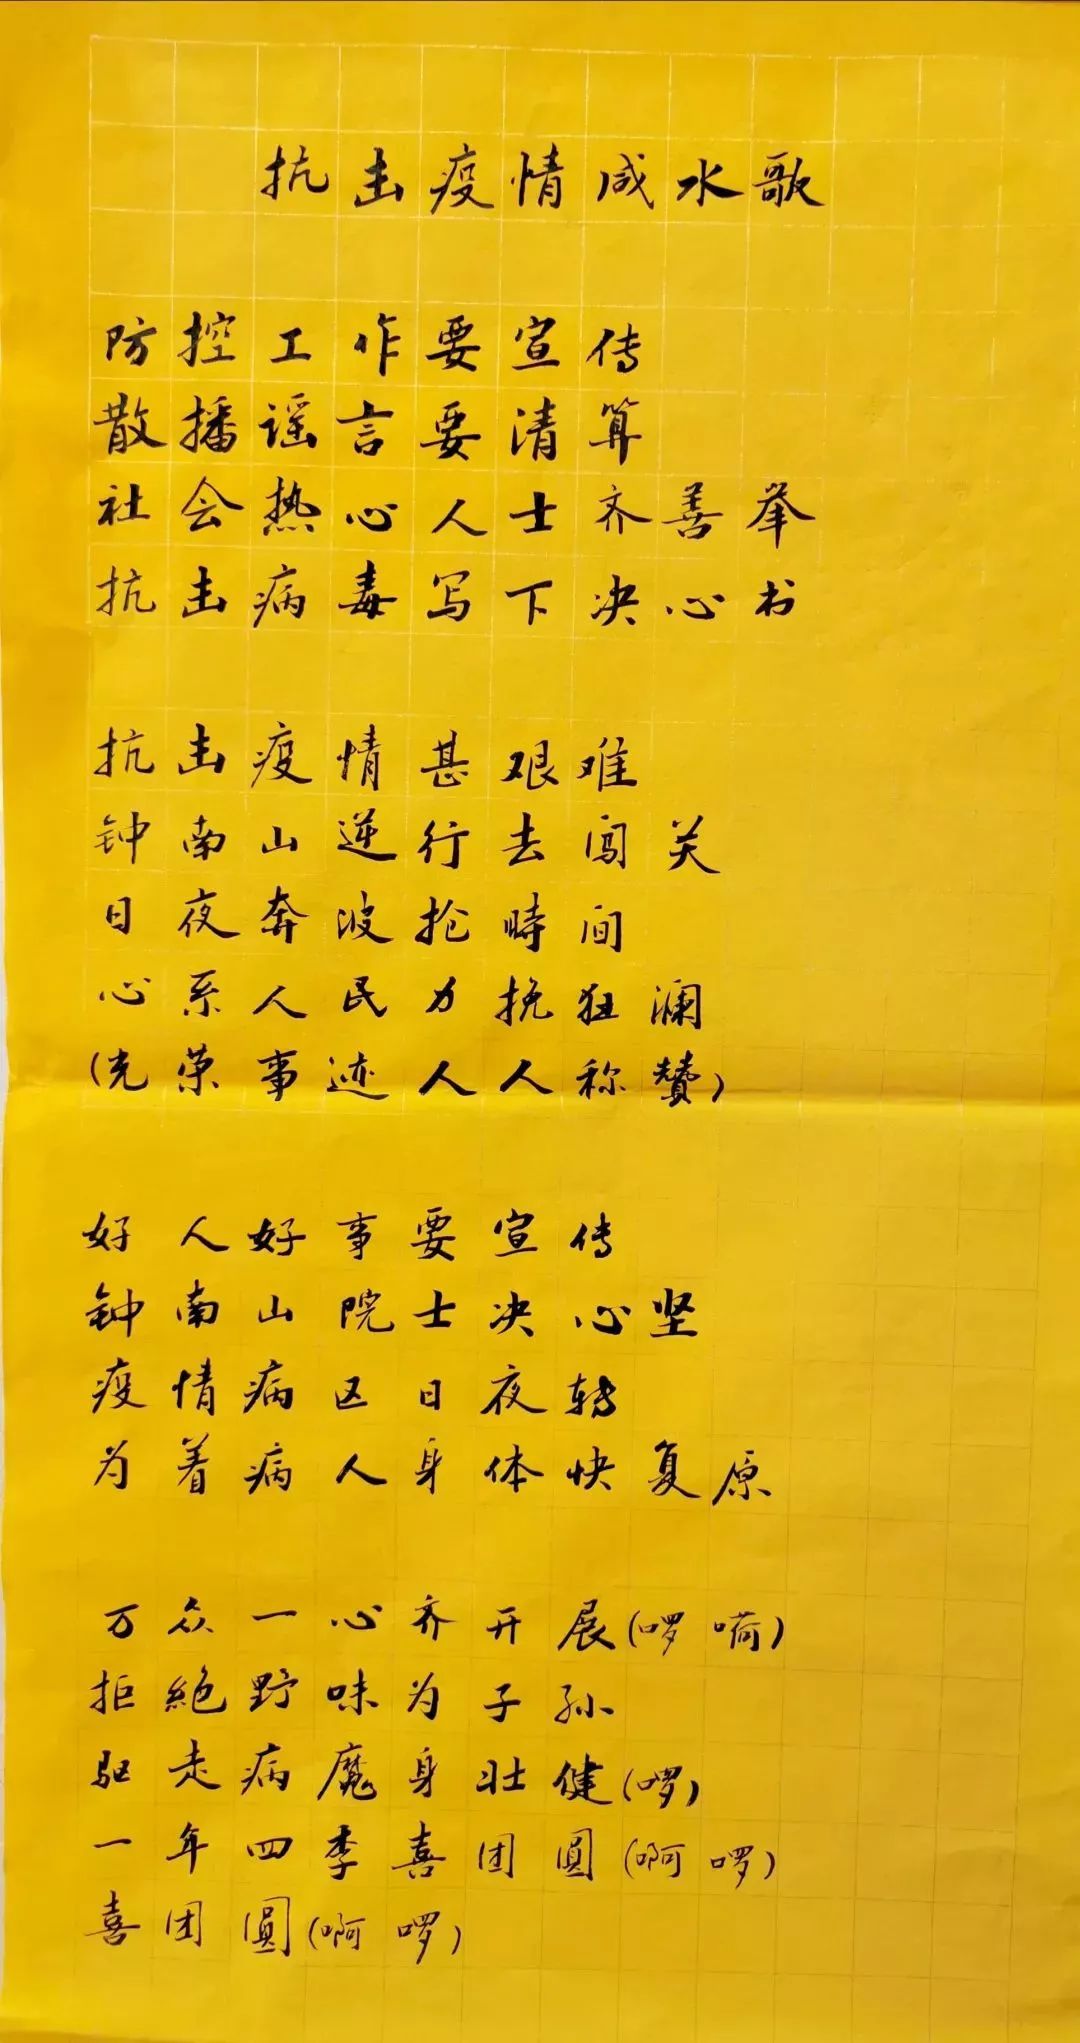 抗击疫情咸水歌
防控工作要宣传
散播谣言要清算
社会热心人士齐善举
抗击病毒写下决心书
抗击疫情甚艰难
钟南山逆行去闯关
日夜奔波抢時间
心系人民力挽狂澜
(光荣事迹人人称贊)
好人好事要宣传
钟南山院士决心坚
疫情病区日夜转
为着病人身体快复原
万众一心齐开展(啰嗬)
拒絕野味为子孙
驱走病魔身壮健(啰)
一年四季喜团圓(啊啰)
喜团圓(啊啰)